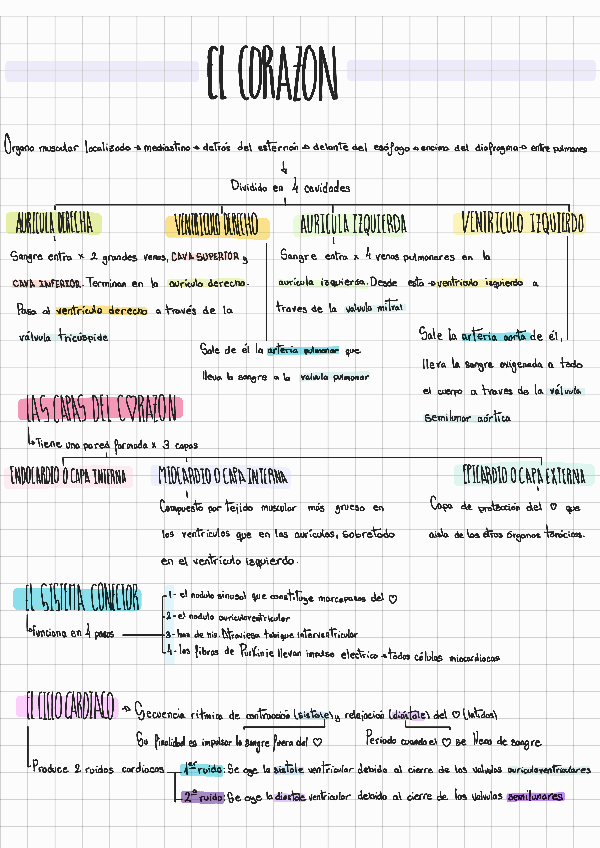 EL CORAZON
Organo muscular localizado → mediastino → detrás del esternón → delante del esófago → encima del diafragma → entre pulmones
Dividido en 4 cavidades
AURICULA DERECHA
Sangre entra x 2 grandes venas, CAVA SUPERIOR y
CAVA INFERIOR. Terminan en la aurícula derecha.
Pasa al ventrículo derecho a través de la
válvula tricúspide
VENTRICULO DERECHO
Sale de él la arteria pulmonar que
lleva la sangre a la valvula pulmonar
AURICULA IZQUIERDA
Sangre entra x 4 venas pulmonares en la
aurícula izquierda. Desde esta → ventrículo izquierdo a
traves de la valvula mitral
VENTRICULO IZQUIERDO
Sale la arteria aorta de él,
lleva la sangre oxigenada a todo
el cuerpo a traves de la válvula
semilunar aórtica
LAS CAPAS DEL CORAZON
Tiene una pared formada x 3 capas
ENDOCARDIO O CAPA INTERNA
MIOCARDIO O CAPA INTERNA
Compuesto por tejido muscular más grueso en
los ventrículos que en las aurículas, sobretodo
en el ventrículo izquierdo.
EPICARDIO O CAPA EXTERNA
Capa de protección del ♡ que
aisla de los otros órganos torácicos.
EL SISTEMA CONECTOR
funciona en 4 pasos
1- el nodulo sinusal que constituye marcapasos del ♡
2- el nodulo auriculoventricular
3- haz de his. Atraviesa tabique interventricular
4- las fibras de Purkinie llevan impulso electrico → todas células miocardiacas
EL CICLO CARDIACO → Secuencia rítmica de contracción (sístole) y relajación (diástole) del ♡ (latidos)
Su finalidad es impulsar la sangre fuera del ♡
Periodo cuando el ♡ se llena de sangre
Produce 2 ruidos cardiacos
1er ruido: Se oye la sistole ventricular debido al cierre de las valvulas auriculoventriculares
2º ruido: Se oye la diastole ventricular debido al cierre de las valvulas semilunares